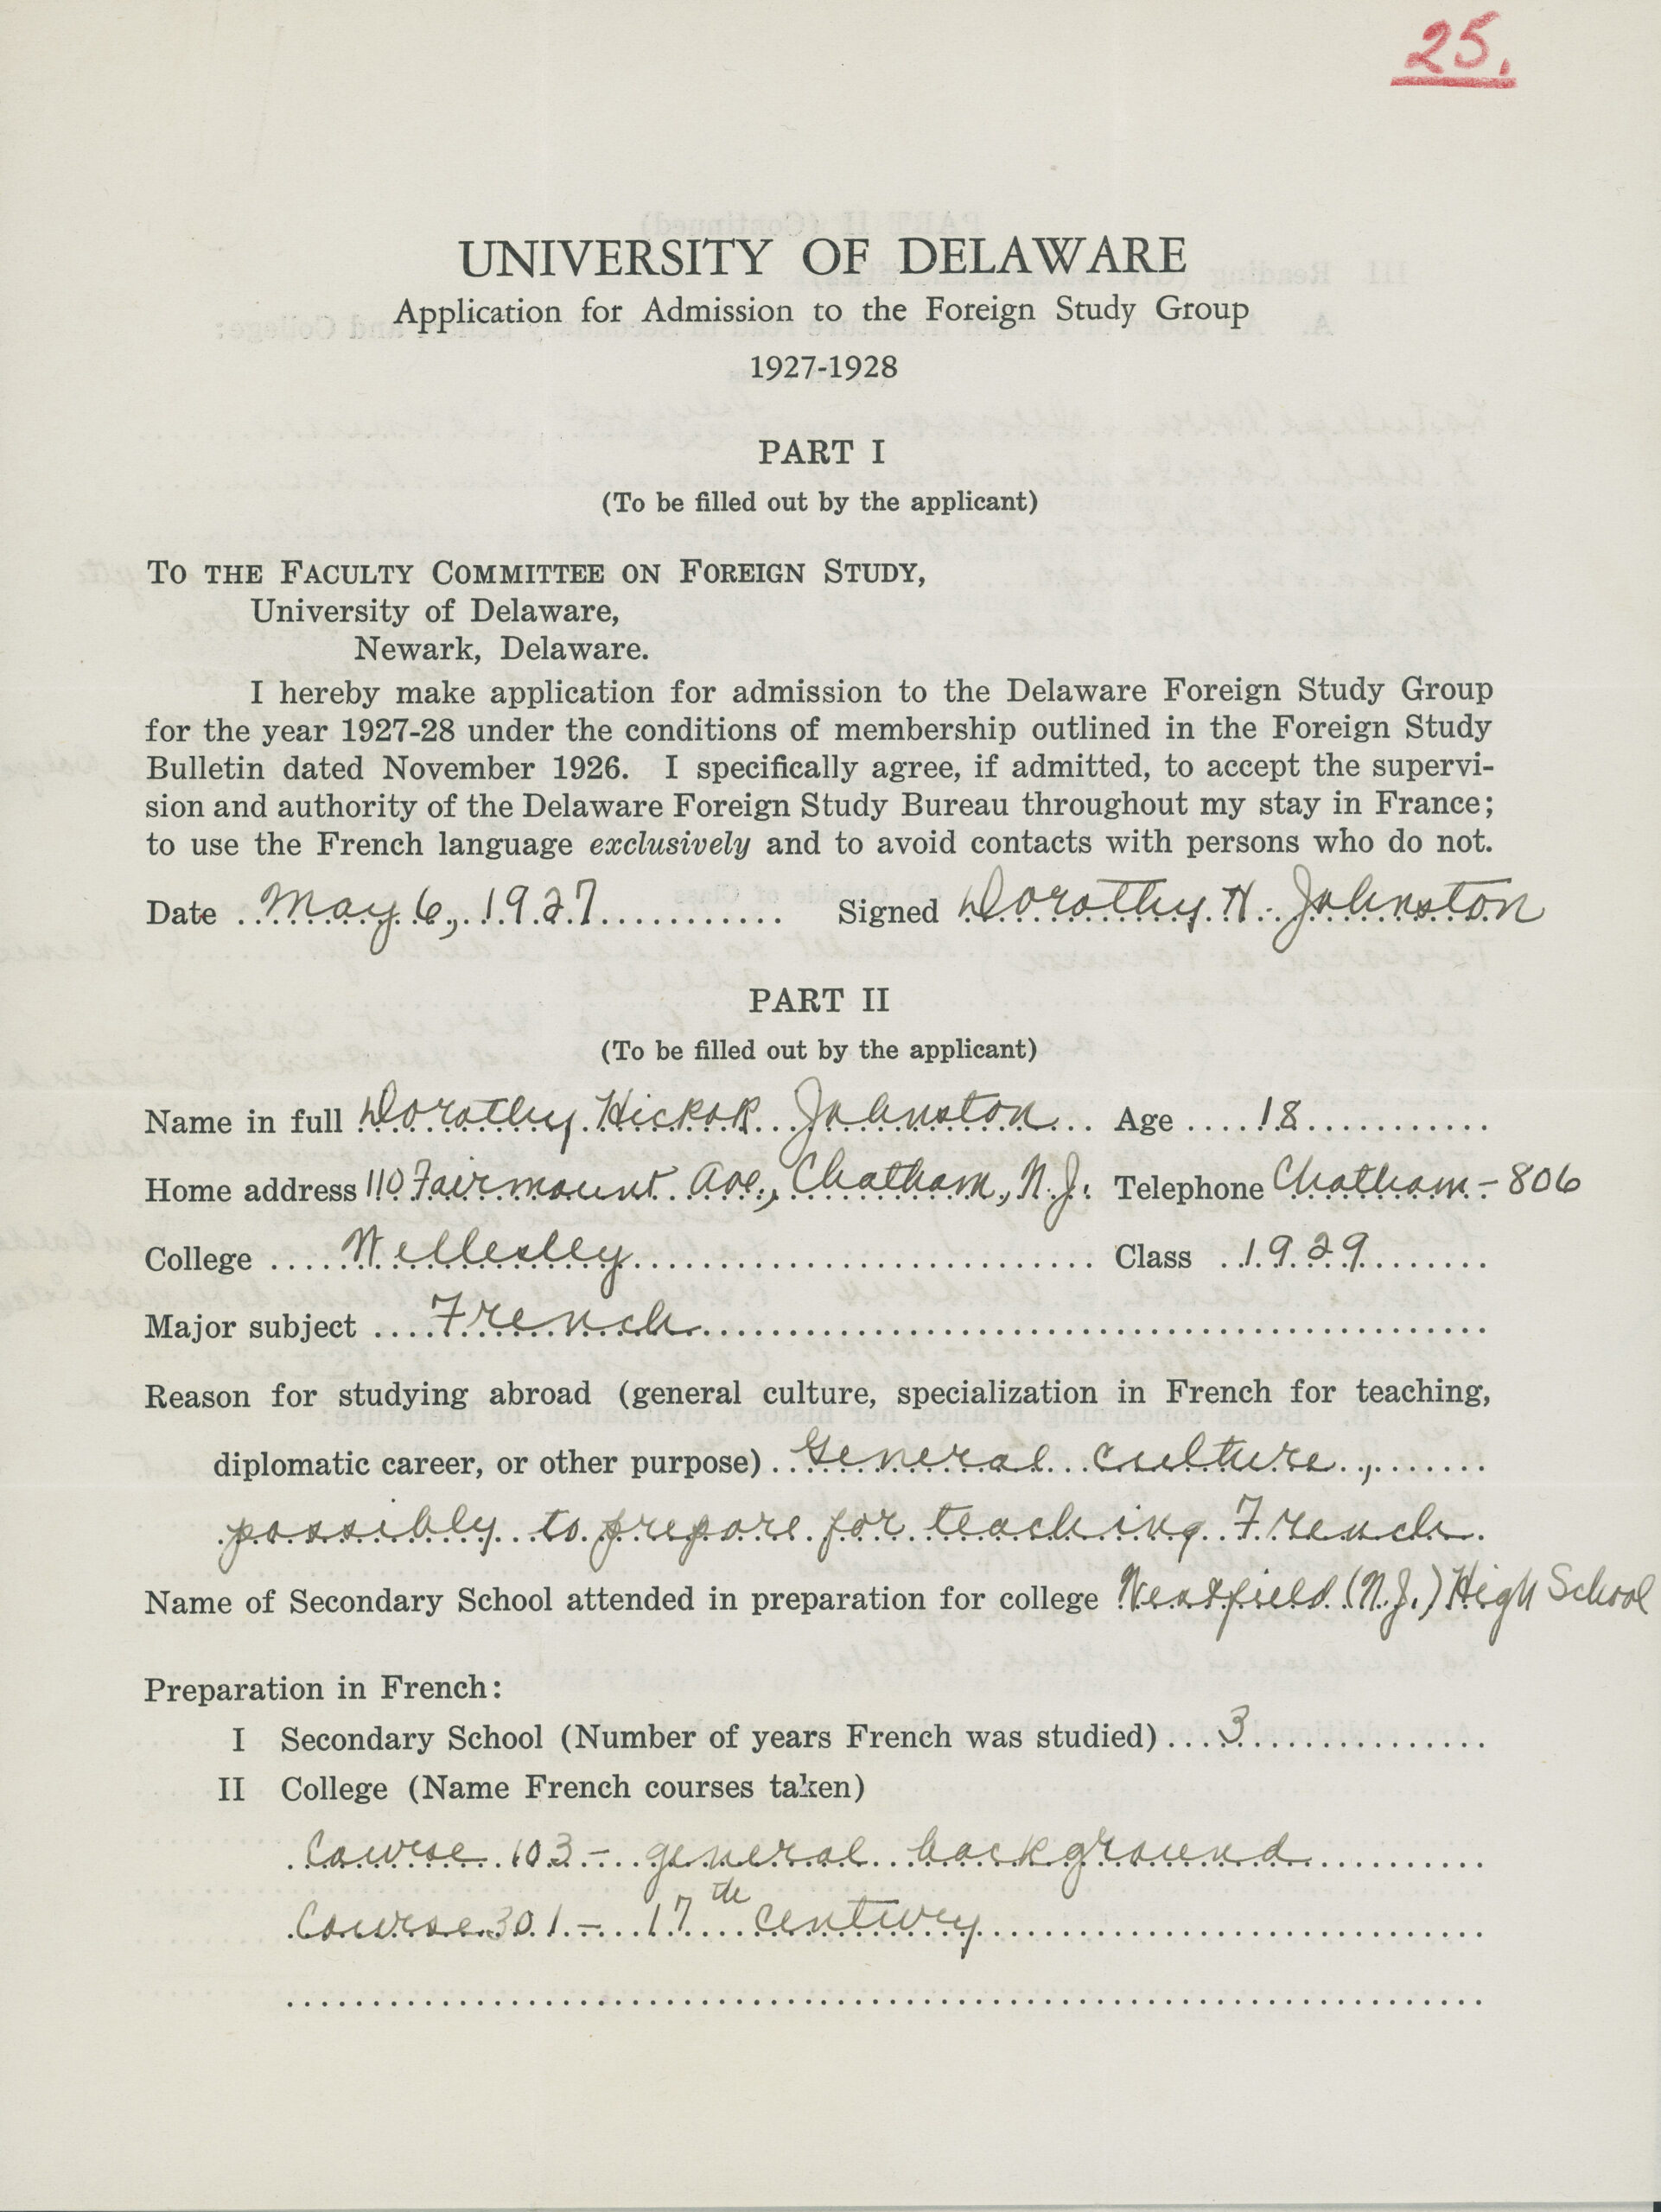 25.
UNIVERSITY OF DELAWARE
Application for Admission to the Foreign Study Group
1927-1928
PART I
(To be filled out by the applicant)
TO THE FACULTY COMMITTEE ON FOREIGN STUDY,
University of Delaware,
Newark, Delaware.
I hereby make application for admission to the Delaware Foreign Study Group
for the year 1927-28 under the conditions of membership outlined in the Foreign Study
Bulletin dated November 1926. I specifically agree, if admitted, to accept the supervi-
sion and authority of the Delaware Foreign Study Bureau throughout my stay in France;
to use the French language exclusively and to avoid contacts with persons who do not.
Date May 6, 1927 Signed Dorothy H. Johnston
PART II
(To be filled out by the applicant)
Name in full Dorothy Hickok Johnston Age 18
Home address 110 Fairmount Ave., Chatham, N.J. Telephone Chatham - 806
College Wellesley Class 1929
Major subject French
Reason for studying abroad (general culture, specialization in French for teaching,
diplomatic career, or other purpose) General culture,
possibly to prepare for teaching French.
Name of Secondary School attended in preparation for college Westfield (N.J.) High School
Preparation in French:
I Secondary School (Number of years French was studied) 3
II College (Name French courses taken)
Course 103 - general background
Course 301 - 17th century